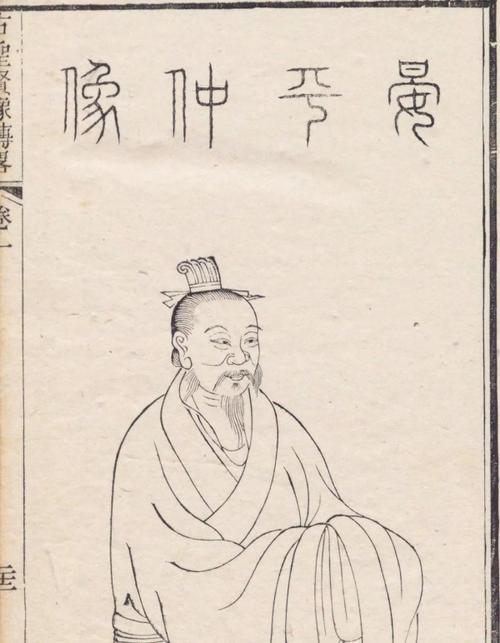 晏平仲像
古聖賢像傳略
卷一